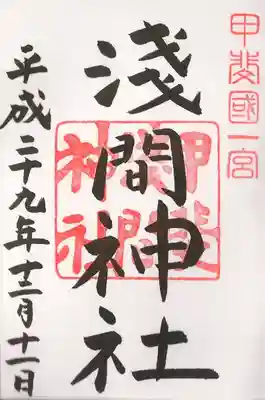 甲斐國一宮
淺間神社
平成二十九年十二月十一日